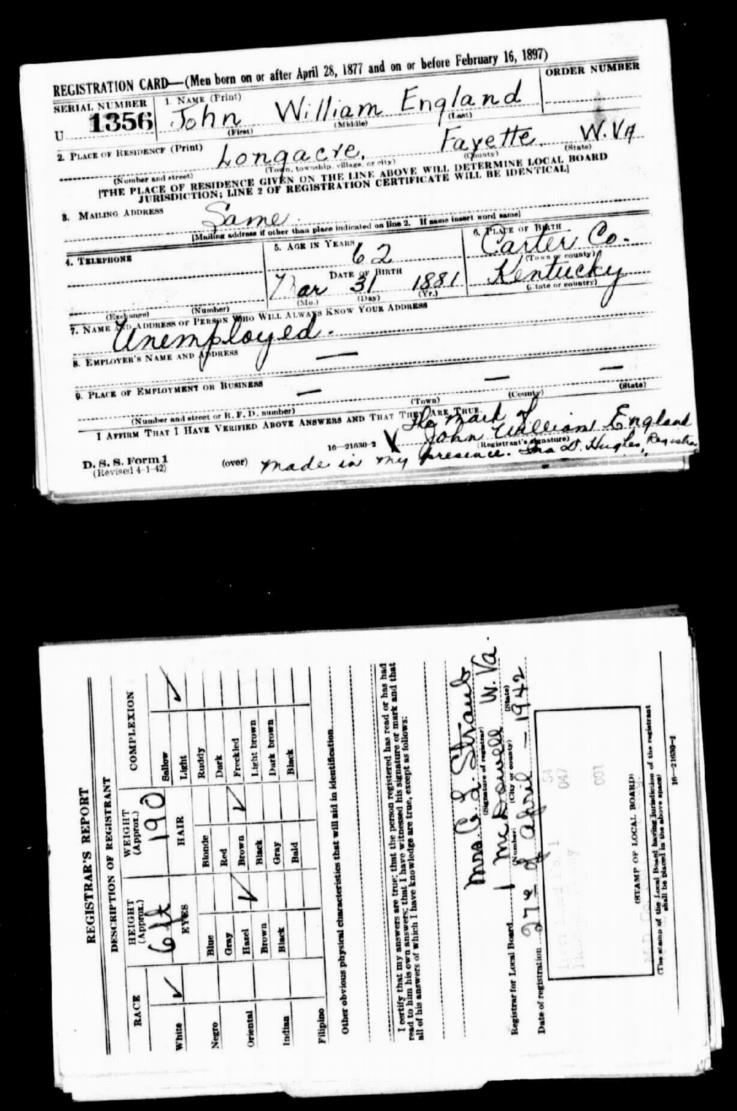 REGISTRATION CARD—(Men born on or after April 28, 1877 and on or before February 16, 1897)
SERIAL NUMBER 1. NAME (Print) ORDER NUMBER
U 1356 John William England
(First) (Middle) (Last)
2. PLACE OF RESIDENCE (Print)
Longacre, Fayette W. Va
(Number and street) (Town, township, village, or city) (County) (State)
[THE PLACE OF RESIDENCE GIVEN ON THE LINE ABOVE WILL DETERMINE LOCAL BOARD
JURISDICTION; LINE 2 OF REGISTRATION CERTIFICATE WILL BE IDENTICAL]
3. MAILING ADDRESS
Same
[Mailing address if other than place indicated on line 2. If same insert word same]
4. TELEPHONE 5. AGE IN YEARS 6. PLACE OF BIRTH
62 Carter Co.
DATE OF BIRTH (Town or county)
Mar 31 1881 Kentucky
(Exchange) (Number) (Mo.) (Day) (Yr.) (State or country)
7. NAME AND ADDRESS OF PERSON WHO WILL ALWAYS KNOW YOUR ADDRESS
Unemployed.
8. EMPLOYER'S NAME AND ADDRESS
—
9. PLACE OF EMPLOYMENT OR BUSINESS
— — —
(Number and street or R. F. D. number) (Town) (County) (State)
I AFFIRM THAT I HAVE VERIFIED ABOVE ANSWERS AND THAT THEY ARE TRUE.
mark of
John William England
D. S. S. Form 1 16—21630-2 (Registrant's signature)
(Revised 4-1-42) (over) made in my presence. D. Hughes, Registrar
REGISTRAR'S REPORT
DESCRIPTION OF REGISTRANT
RACE HEIGHT (Approx.) WEIGHT (Approx.) COMPLEXION
6 ft 190
EYES HAIR
White ✓ Blue Blonde Sallow
Negro Gray Red Light ✓
Oriental Hazel ✓ Brown ✓ Ruddy
Indian Brown Black Dark
Filipino Black Gray Freckled
Bald Light brown
Dark brown
Black
Other obvious physical characteristics that will aid in identification
I certify that my answers are true; that the person registered has read or has had
read to him his own answers; that I have witnessed his signature or mark and that
all of his answers of which I have knowledge are true, except as follows:
Mrs. Straub
(Signature of registrar)
Registrar for Local Board 1 McDowell W. Va.
(Number) (City or county) (State)
Date of registration 27 of April — 1942
(STAMP OF LOCAL BOARD)
(The stamp of the Local Board having jurisdiction of the registrant
shall be placed in the above space)
16—21630-1